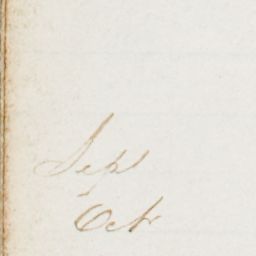 Sept
Oct